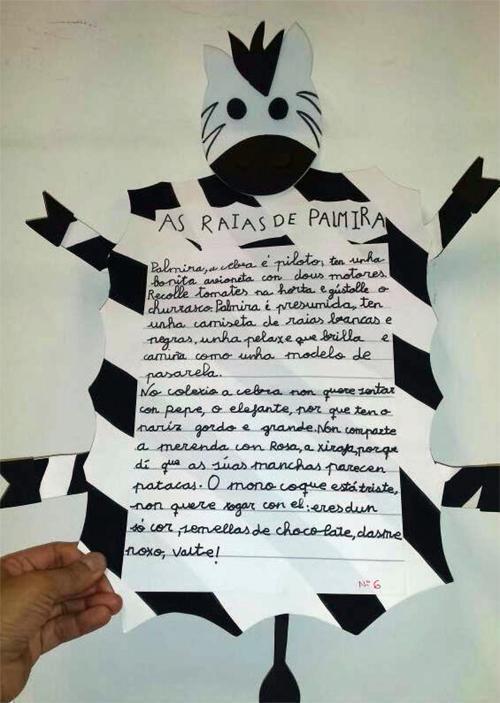 AS RAIAS DE PALMIRA
Palmira, a cebra é piloto, ten unha
bonita avioneta con dous motores.
Recolle tomates na horta e gústalle o
churrasco. Palmira é presumida, ten
unha camiseta de raias brancas e
negras, unha pelaxe que brilla e
camiña como unha modelo de
pasarela.
No colexio a cebra non quere sentar
con pepe, o elefante, por que ten o
nariz gordo e grande. Non comparte
a merenda con Rosa, a xirafa, porque
di que as súas manchas parecen
patacas. O mono coque está triste,
non quere xogar con el: eres dun
só cor, semellas de chocolate, dasme
noxo, vaite!
Nº 6